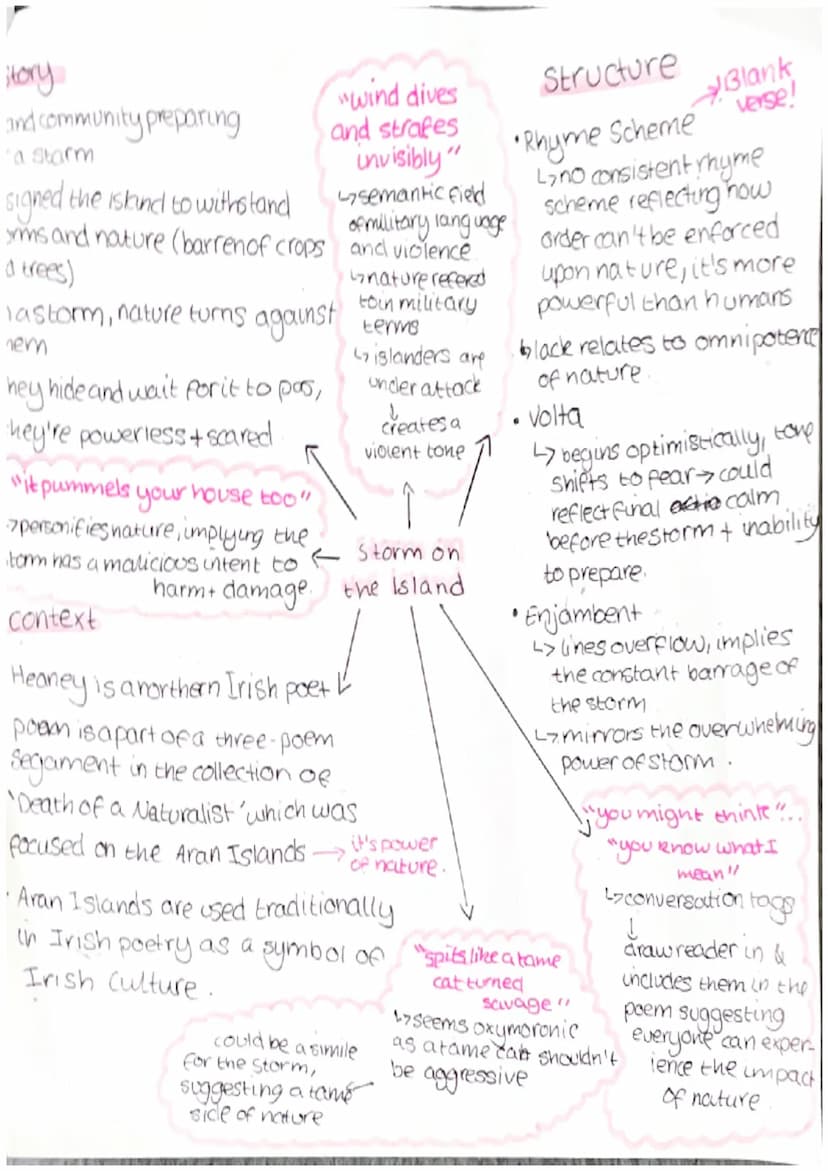 story
and community preparing
a storm
signed the island to withstand
orms and nature (barren of crops
d trees)
a storm, nature turns against
hem
hey hide and wait for it to pass,
hey're powerless + scared
"it pummels your house too"
→personifies nature, implying the
storm has a malicious intent to
harm + damage.
context
Heaney is a northern Irish poet
poem is a part of a three-poem
segament in the collection of
'Death of a Naturalist' which was
focused on the Aran Islands → it's power
of nature.
· Aran Islands are used traditionally
in Irish poetry as a symbol of
Irish Culture.
"wind dives
and strafes
invisibly"
↳semantic field
of military language
and violence
↳nature refered
to in military
terms
↳islanders are
under attack
↓
creates a
violent tone
Storm on
the Island
"spits like a tame
cat turned
savage"
↳seems oxymoronic
as a tame cat shouldn't
be aggressive
could be a simile
for the storm,
suggesting a tame
side of nature
Structure
→Blank
verse!
• Rhyme Scheme
↳no consistent rhyme
scheme reflecting how
order can't be enforced
upon nature, it's more
powerful than humans
↳lack relates to omnipotence
of nature.
• Volta
↳ begins optimistically, tone
shifts to fear → could
reflect final calm
before the storm + inability
to prepare.
• Enjambent
↳ lines overflow, implies
the constant barrage of
the storm
↳mirrors the overwheming
power of storm.
"you might think"...
"you know what I
mean"
↳conversation tags
↓
draw reader in &
includes them in the
poem suggesting
everyone can exper-
ience the impact
of nature.